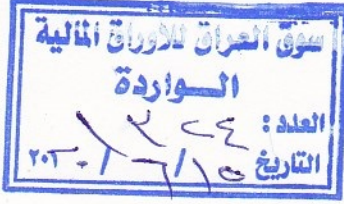 سوق العراق للأوراق المالية
الـــواردة
العدد : ١٣٢٤
التاريخ ١٥ / ٦ / ٢٠٢٠